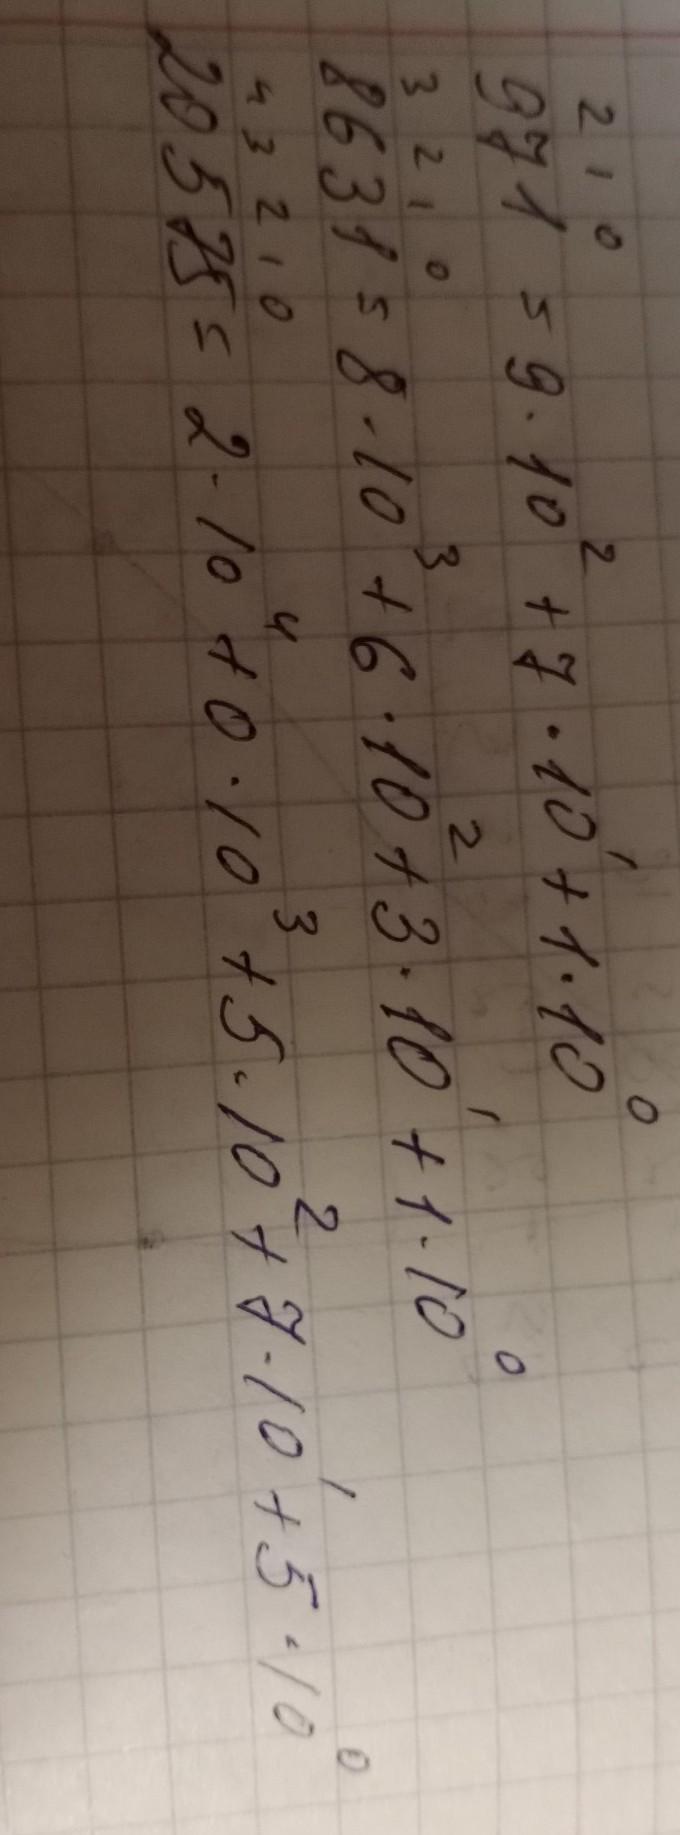 2 1 0
971 = 9·10² + 7·10¹ + 1·10⁰
3 2 1 0
8631 = 8·10³ + 6·10² + 3·10¹ + 1·10⁰
4 3 2 1 0
20575 = 2·10⁴ + 0·10³ + 5·10² + 7·10¹ + 5·10⁰